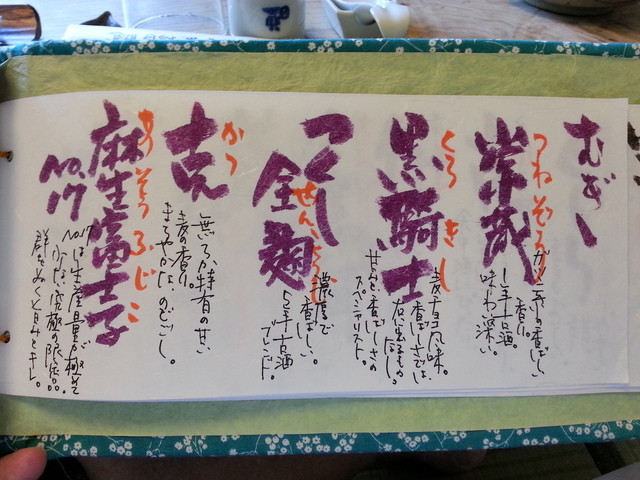 むぎー
常蔵
つねぞう
ガツンと芳の香ばしい
香り。
5年古酒。
味わい深い。
黒騎士
くろ きし
麦チョコ風味。
香ばしさでは、
右に出るもの
なし。
甘みと香ばしさの
スペシャリスト。
つくし
全麹
ぜんこうじ
濃厚で
香ばしい。
5年古酒
ブレンド。
克
かつ
無ろか特有の甘い
麦の香り。
まろやかな、のどごし。
麻生富士子
あそう ふじこ
No.17
No.17は生産量が極めて
少ない究極の限定品。
群をぬく甘みとキレ。